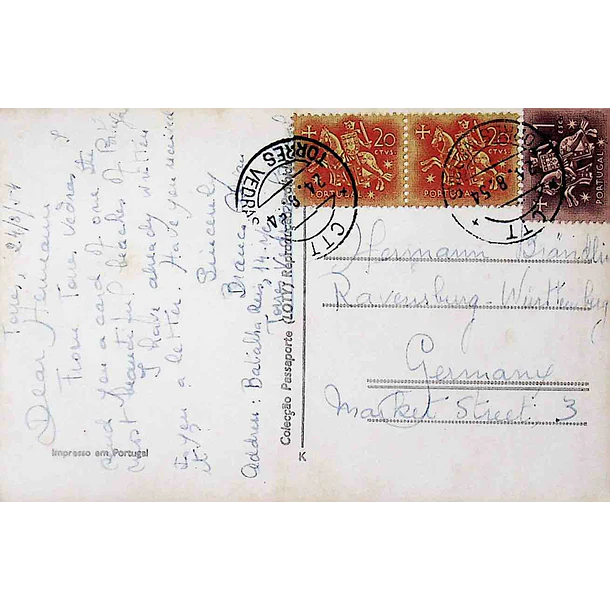 Torres, 24/8/54
Dear Hermann
From Torres Vedras I
send you a card of one the
most beautiful beaches of Portugal
I have already written
to you a letter. Have you received
it?
Sincerely
Branca
Address: Batalha Reis, 14
Torres
Impresso em Portugal
Colecção Passaporte (LOTY) Reprodução
K
20
CTVS.
PORTUGAL
20
CTVS.
PORTUGAL
ESC.
PORTUGAL
TORRES VEDRAS
24.8.54
CTT
8.54
CTT
Hermann
Ravensburg-Württemberg
Germany
Market Street 3